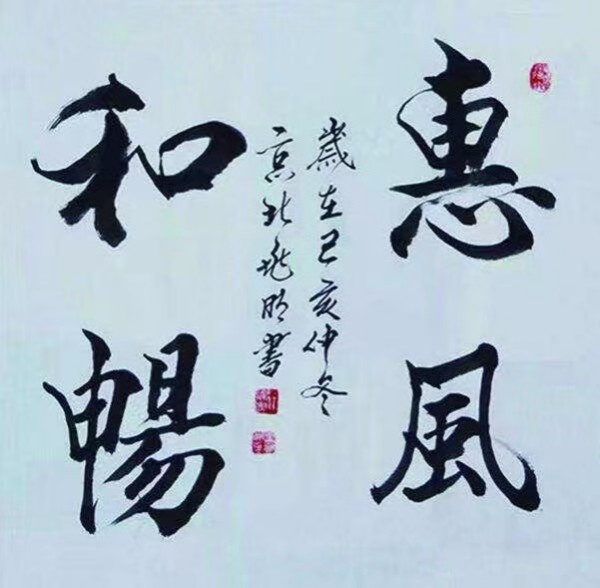 惠風
和暢
歲在己亥仲冬
京北明書